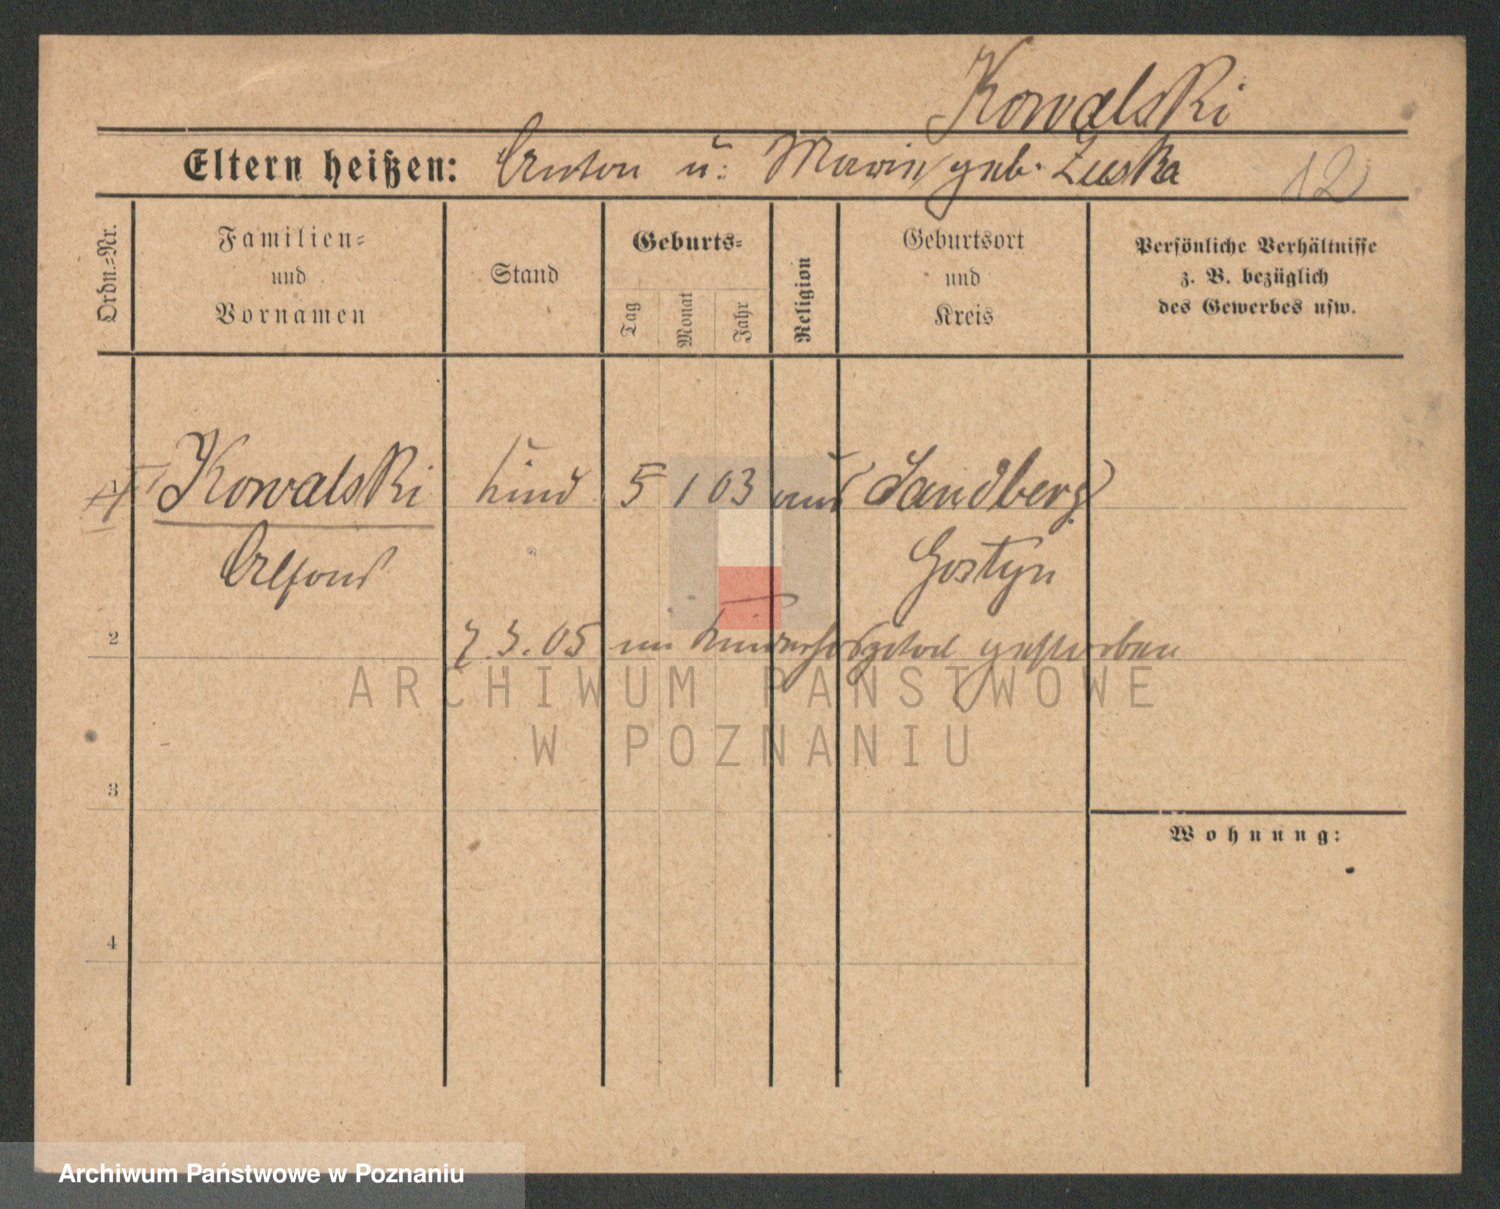 Kowalski
Eltern heißen: Anton u: Marie geb. Zuska 12
Ordn.=Nr.
Familien=
und
Vornamen
Stand
Geburts=
Tag
Monat
Jahr
Religion
Geburtsort
und
Kreis
Persönliche Verhältnisse
z. B. bezüglich
des Gewerbes usw.
Kowalski Kind 5 1 03 Sandberg
Alfons Gostyn
2 7.3.05 im gestorben
ARCHIWUM PAŃSTWOWE
W POZNANIU
3
Wohnung:
4
Archiwum Państwowe w Poznaniu